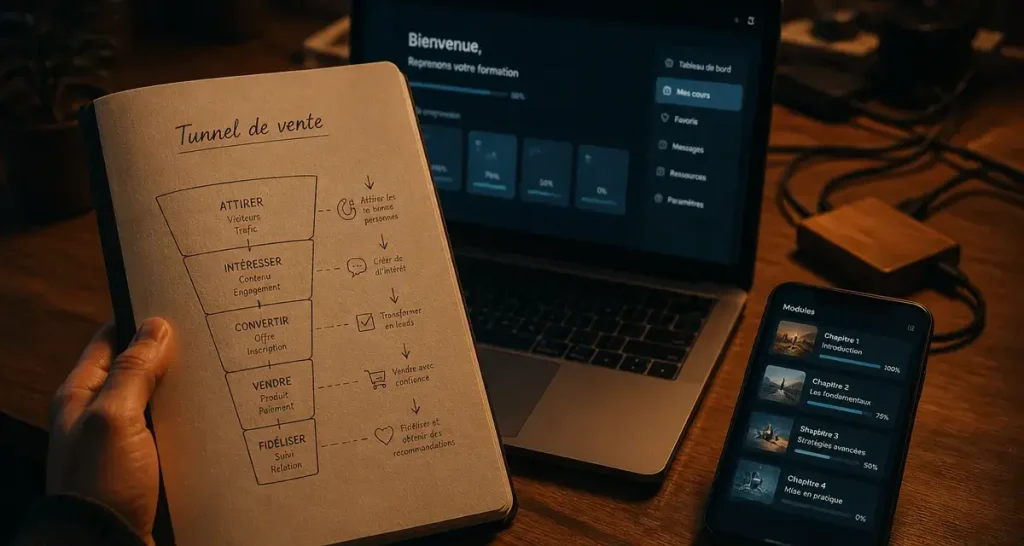 Tunnel de vente
ATTIRER
Visiteurs
Trafic
Attirer les
to bonne
personnes
INTÉRESSER
Contenu
Engagement
Créer de
di'intérêt
CONVERTIR
Offre
Inscription
Transformer
en leads
VENDRE
Produit
Paiement
Vendre avec
confience
FIDÉLISER
Suivi
Relation
Fidéliser et
obtenir des
recommandations
Bienvenue,
Reprenons votre formation
progression
0%
Tableau de bord
Mes cours
Favoris
Messages
Ressources
Paramètres
Modules
Chapitre 1
Introduction
100%
Chapitre 2
Les fondamentaux
75%
Shapbitre 3
Stratégies avancées
50%
Chapitre 4
Mise en pratique
0%